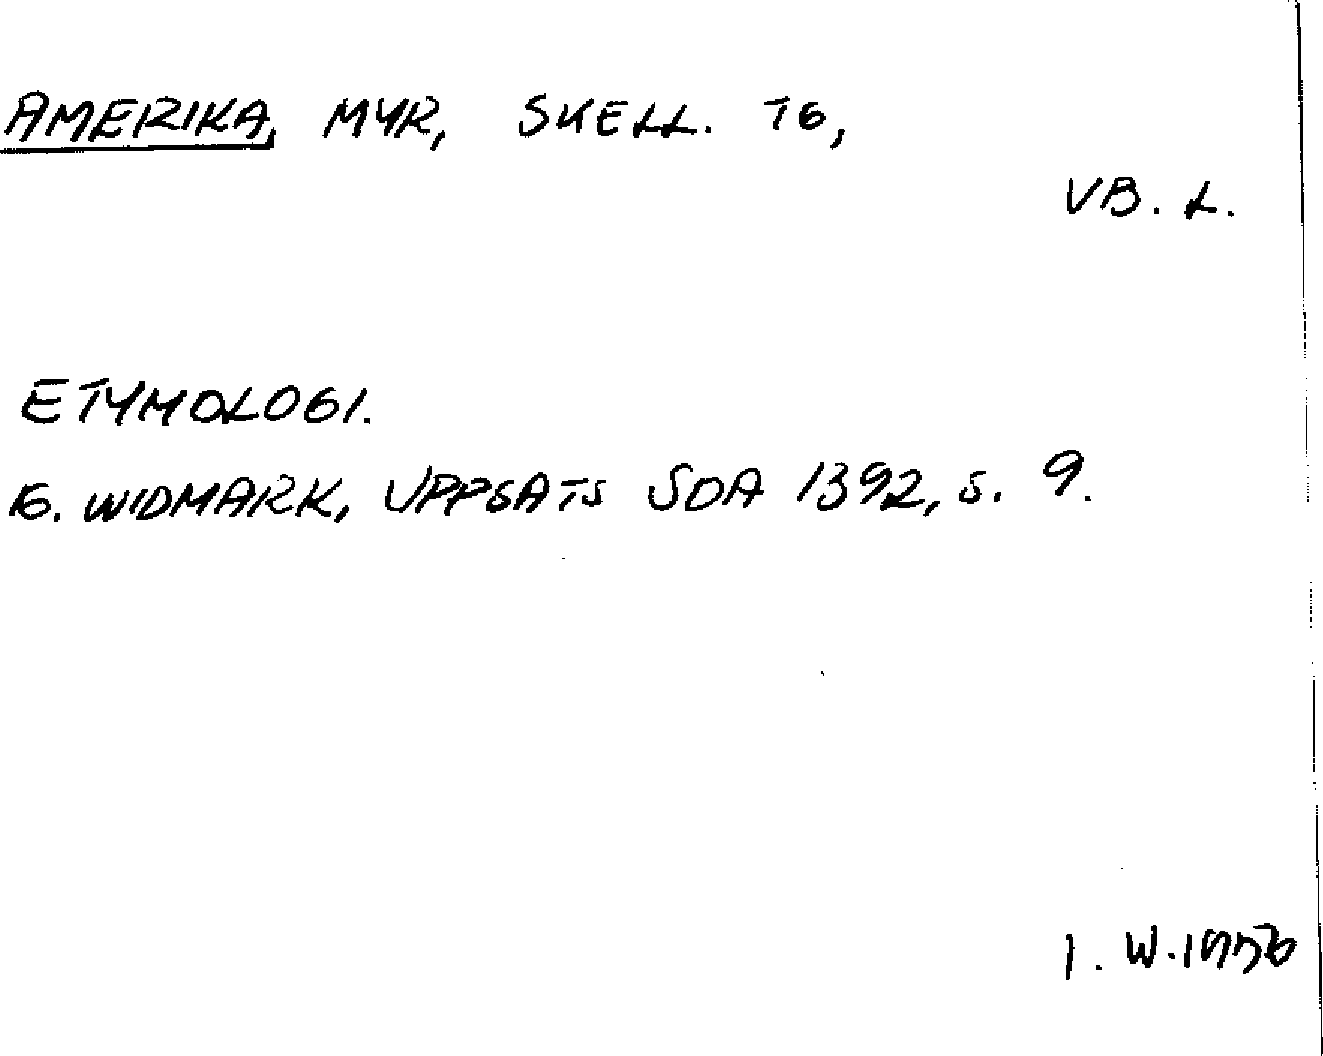 AMERIKA, MYR, SKELL. TG,
VB. L.
ETYMOLOGI.
G. WIDMARK, UPPSATS SOA 1392, S. 9.
I. W.